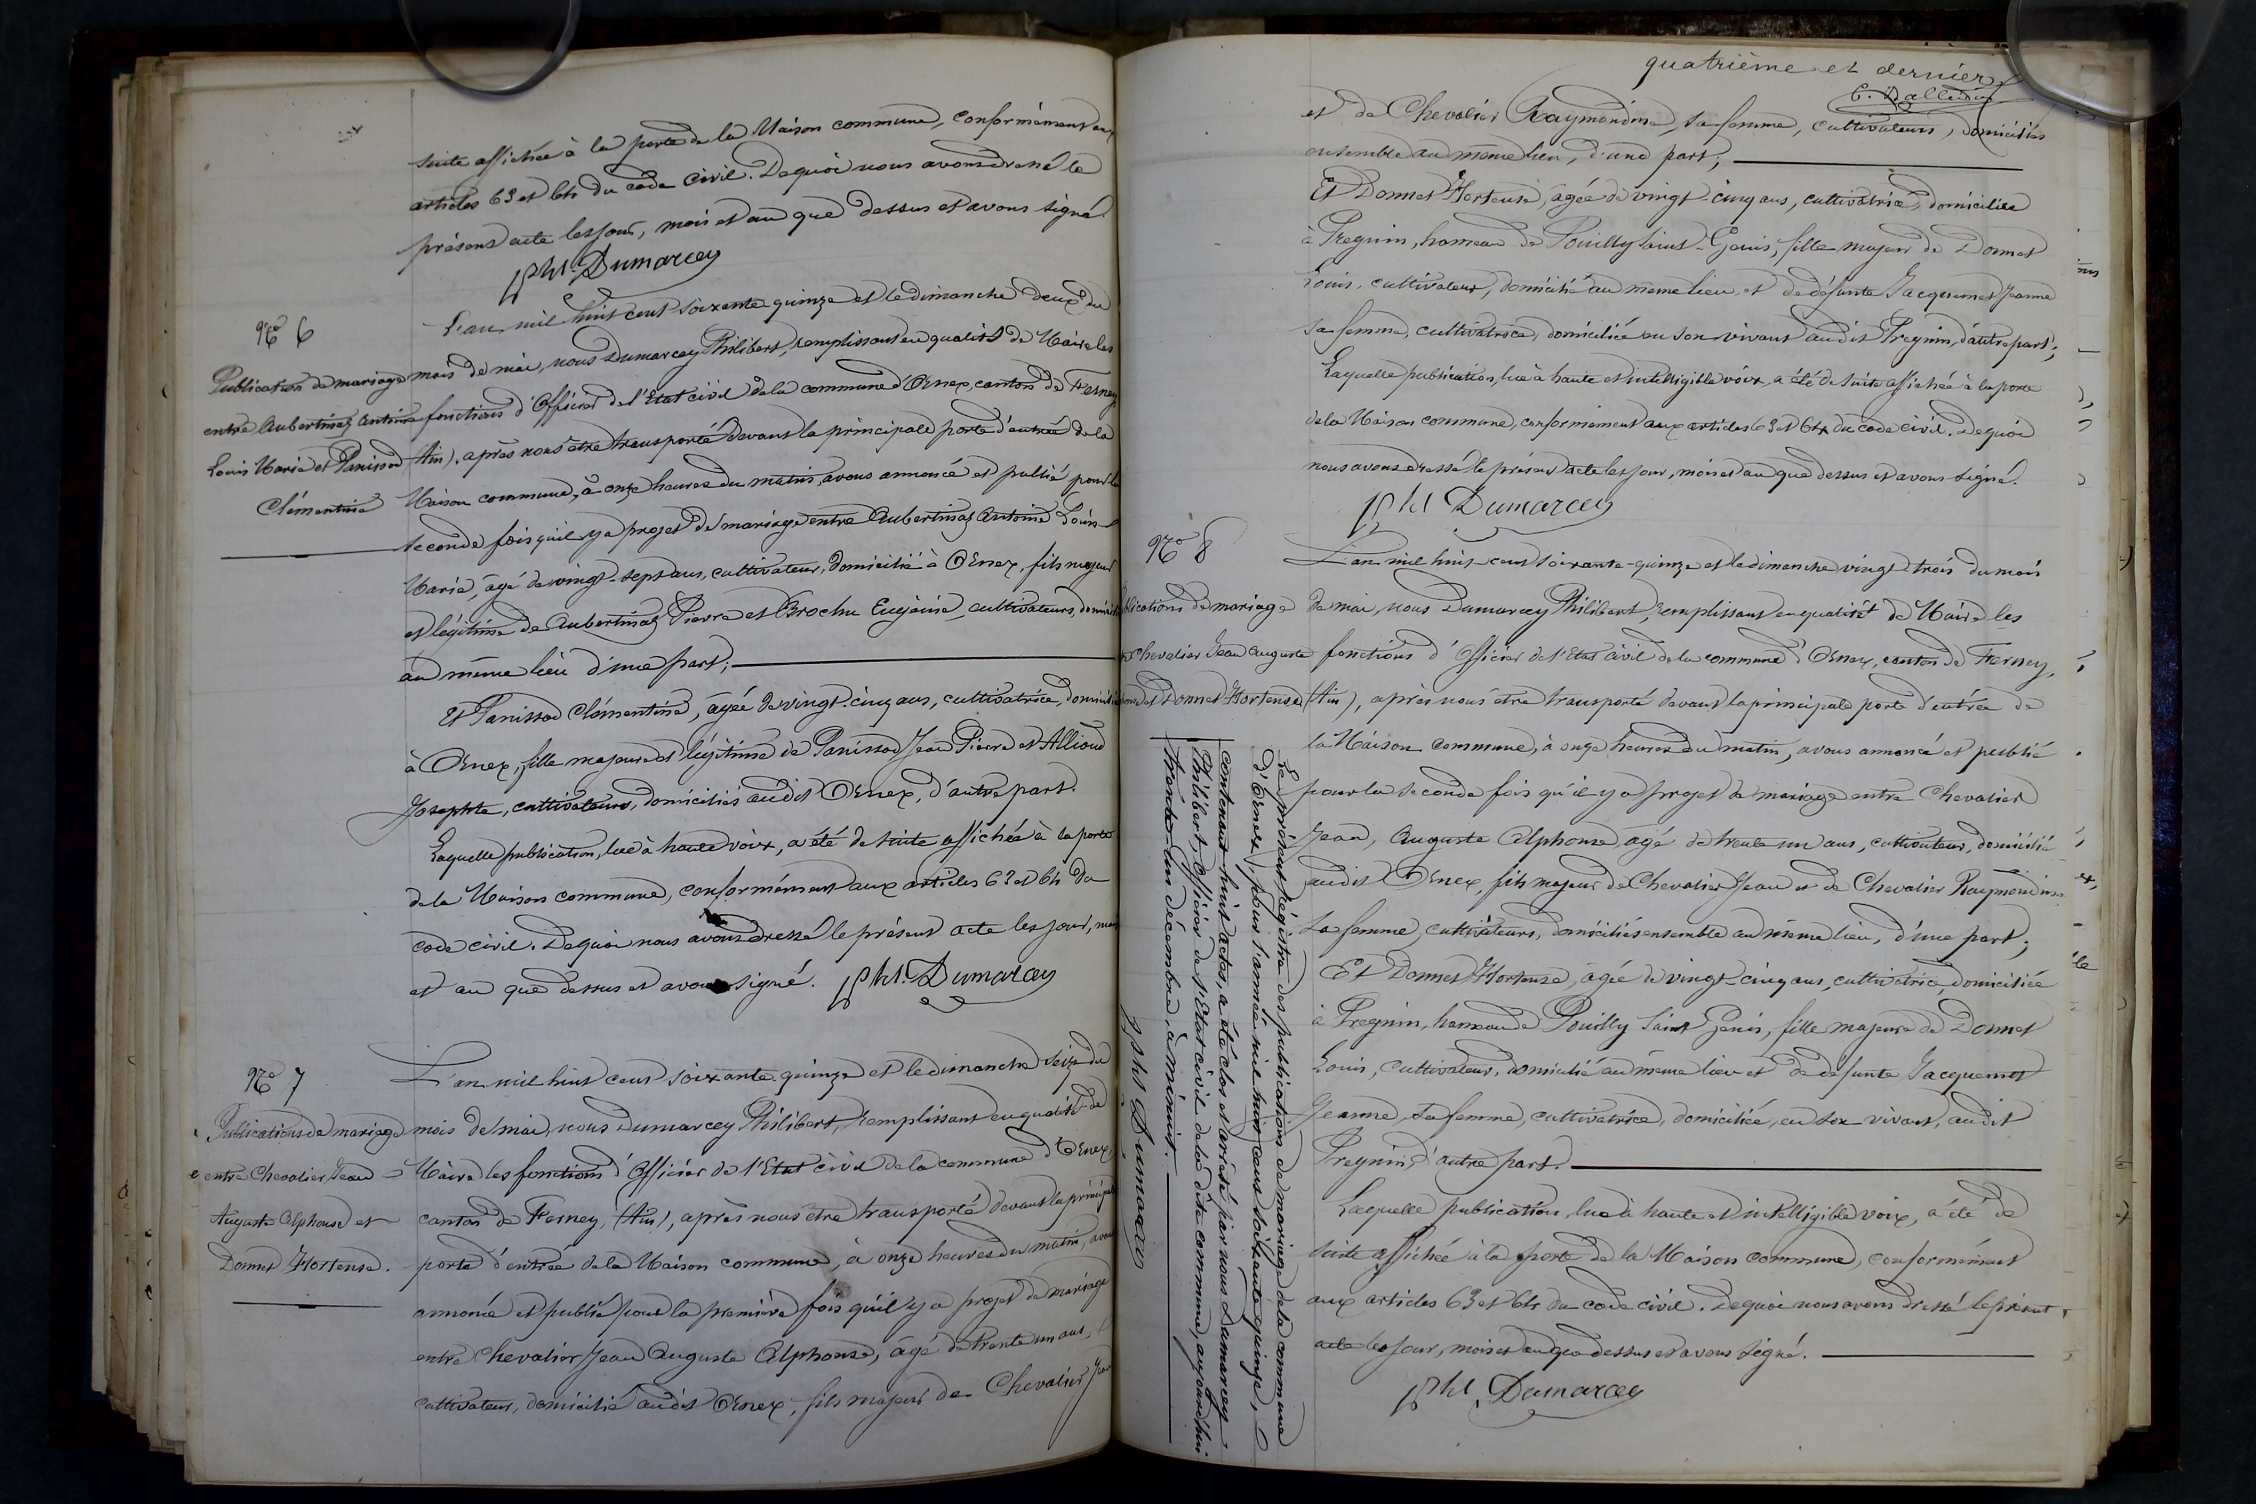 suite affichée à la porte de la Maison commune, conformément aux
articles 63 et 64 du code civil. De quoi nous avons dressé le
présent acte les jour, mois et an que dessus et avons signé.
Pht. Dumarcey
N° 6
Publication de mariage
entre Aubertinaz Antoine
Louis Marie et Panissod
Clémentine
L'an mil huit cent soixante quinze et le dimanche deux du
mois de mai, nous Dumarcey Philibert, remplissant en qualité de Maire les
fonctions d'Officier de l'Etat civil de la commune d'Ornex, canton de Ferney
(Ain), après nous être transporté devant la principale porte d'entrée de la
Maison commune, à onze heures du matin, avons annoncé et publié pour la
seconde fois qu'il y a projet de mariage entre Aubertinaz Antoine Louis
Marie, âgé de vingt-sept ans, cultivateur, domicilié à Ornex, fils majeur
et légitime de Aubertinaz Pierre et Brochu Eugénie, cultivateurs, domiciliés
au même lieu d'une part;
Et Panissod Clémentine, âgée de vingt-cinq ans, cultivatrice, domiciliée
à Ornex, fille majeure et légitime de Panissod Jean Pierre et Allioud
Josephte, cultivateurs, domiciliés audit Ornex, d'autre part.
Laquelle publication, lue à haute voix, a été de suite affichée à la porte
de la Maison commune, conformément aux articles 63 et 64 du
code civil. De quoi nous avons dressé le présent acte les jour, mois
et an que dessus et avons signé. Pht. Dumarcey
N° 7
Publications de mariage
entre Chevalier Jean
Auguste Alphonse et
Donnet Hortense.
L'an mil huit cent soixante quinze et le dimanche seize du
mois de mai, nous Dumarcey Philibert, remplissant en qualité de
Maire les fonctions d'Officier de l'Etat civil de la commune d'Ornex,
canton de Ferney, (Ain), après nous être transporté devant la principale
porte d'entrée de la Maison commune, à onze heures du matin, avons
annoncé et publié pour la première fois qu'il y a projet de mariage
entre Chevalier Jean Auguste Alphonse, âgé de trente un ans,
cultivateur, domicilié audit Ornex, fils majeur de Chevalier Jean
quatrième et dernier
et de Chevalier Raymondine, sa femme, cultivateurs, domiciliés
ensemble au même lieu, d'une part;
Et Donnet Hortense, âgée de vingt-cinq ans, cultivatrice, domiciliée
à Pregnin, hameau de Pouilly Saint-Genis, fille majeure de Donnet
Louis, cultivateur, domicilié au même lieu et de défunte Jacquemet Jeanne
sa femme, cultivatrice, domiciliée en son vivant audit Pregnin, d'autre part;
Laquelle publication, lue à haute et intelligible voix, a été de suite affichée à la porte
de la Maison commune, conformément aux articles 63 et 64 du code civil. De quoi
nous avons dressé le présent acte les jour, mois et an que dessus et avons signé.
Pht Dumarcey
N° 8
blications de mariage
Chevalier Jean Auguste
et Donnet Hortense
L'an mil huit cent soixante-quinze et le dimanche vingt trois du mois
de mai, nous Dumarcey Philibert, remplissant en qualité de Maire les
fonctions d'Officier de l'Etat civil de la commune d'Ornex, canton de Ferney,
(Ain), après nous être transporté devant la principale porte d'entrée de
la Maison commune, à onze heures du matin, avons annoncé et publié
pour la seconde fois qu'il y a projet de mariage entre Chevalier
Jean, Auguste Alphonse, âgé de trente un ans, cultivateur, domicilié
audit Ornex, fils majeur de Chevalier Jean et de Chevalier Raymondine
sa femme, cultivateurs, domiciliés ensemble au même lieu, d'une part;
Et Donnet Hortense, âgée de vingt-cinq ans, cultivatrice, domiciliée
à Pregnin, hameau de Pouilly Saint Genis, fille majeure de Donnet
Louis, cultivateur, domicilié au même lieu et de défunte Jacquemet
Jeanne, sa femme, cultivatrice, domiciliée, en son vivant, audit
Pregnin, d'autre part.
Laquelle publication, lue à haute et intelligible voix, a été de
suite affichée à la porte de la Maison commune, conformément
aux articles 63 et 64 du code civil. De quoi nous avons dressé le présent
acte les jour, mois et an que dessus et avons signé.
Pht. Dumarcey
Le présent régistre des publications de mariage de la commune
d'Ornex, pour l'année mil huit cent soixante quinze,
contenant huit actes, a été clos et arrêté par nous Dumarcey
Philibert, officier de l'Etat civil de la dite commune, aujourd'hui
trente-un décembre, à minuit.
Pht Dumarcey